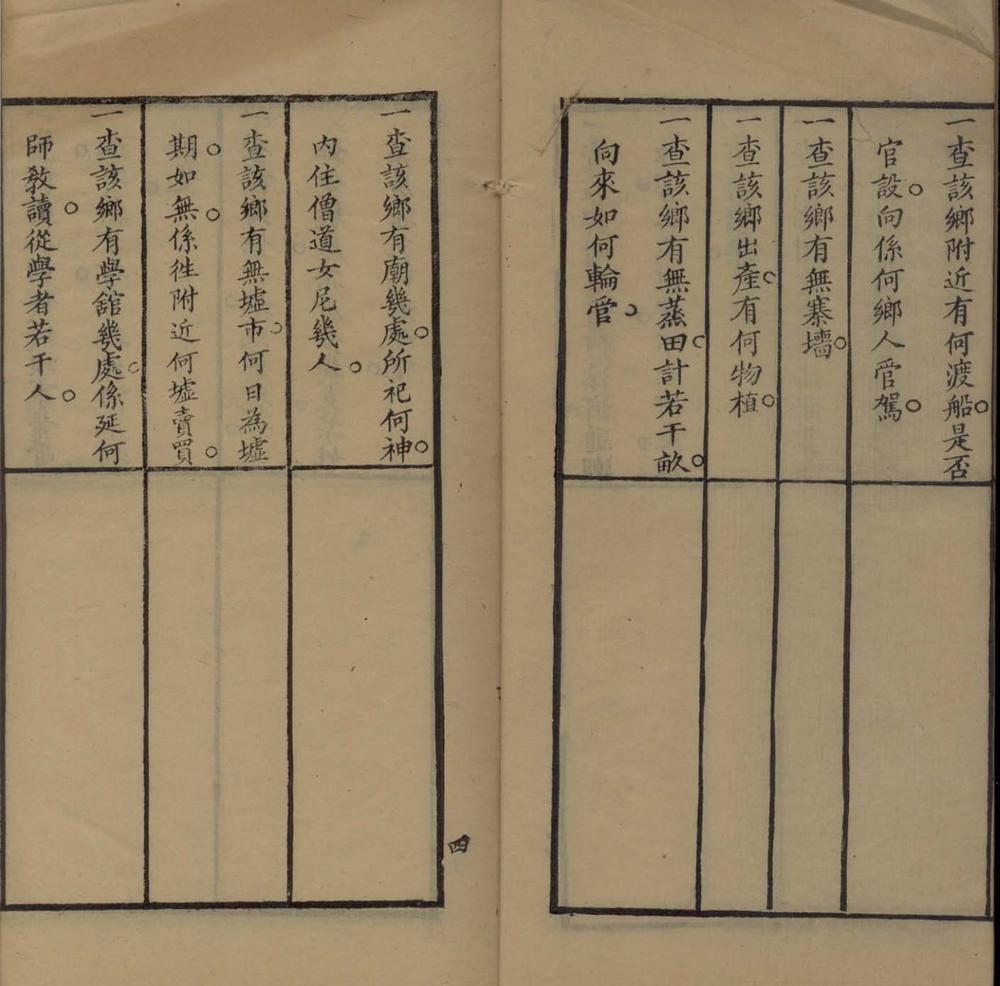 一查該鄉附近有何渡船是否
官設向係何鄉人管駕
一查該鄉有無寨墻
一查該鄉出產有何物植
一查該鄉有無蒸田計若干畝
向來如何輪管
一查該鄉有廟幾處所祀何神
內住僧道女尼幾人
一查該鄉有無墟市何日為墟
期如無係徃附近何墟賣買
一查該鄉有學舘幾處係延何
師教讀從學者若干人
四